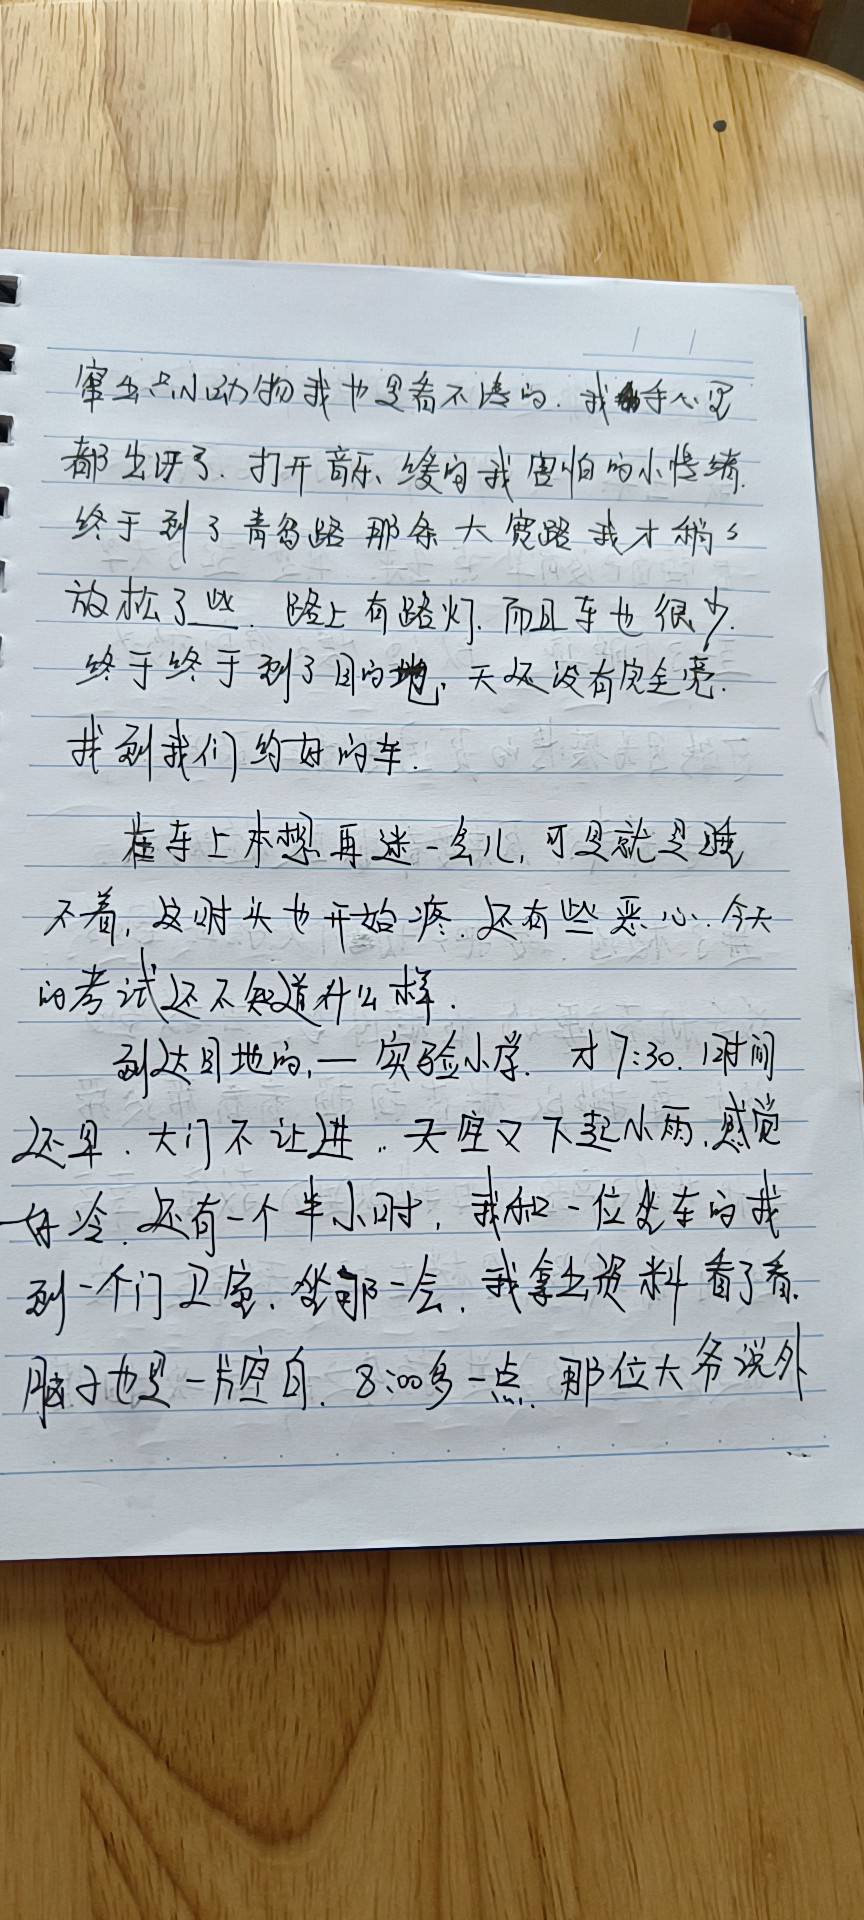 窜出点小动物我也是看不清的.我手心里
都出汗了.打开音乐、缓的我害怕的小情绪.
终于到了青岛路那条大宽路我才稍稍
放松了些.路上有路灯.而且车也很少.
终于终于到了目的地,天还没有完全亮.
找到我们约好的车.
在车上本想再迷一会儿,可是就是睡
不着,这时头也开始疼.还有些恶心.今天
的考试还不知道什么样.
到达目地的,一实验小学.才7:30.时间
还早.大门不让进..天空又下起小雨,感觉
好冷.还有一个半小时,我和一位坐车的找
到一个门卫室.坐那一会.我拿出资料看了看.
脑子也是一片空白.8:00多一点.那位大爷说外